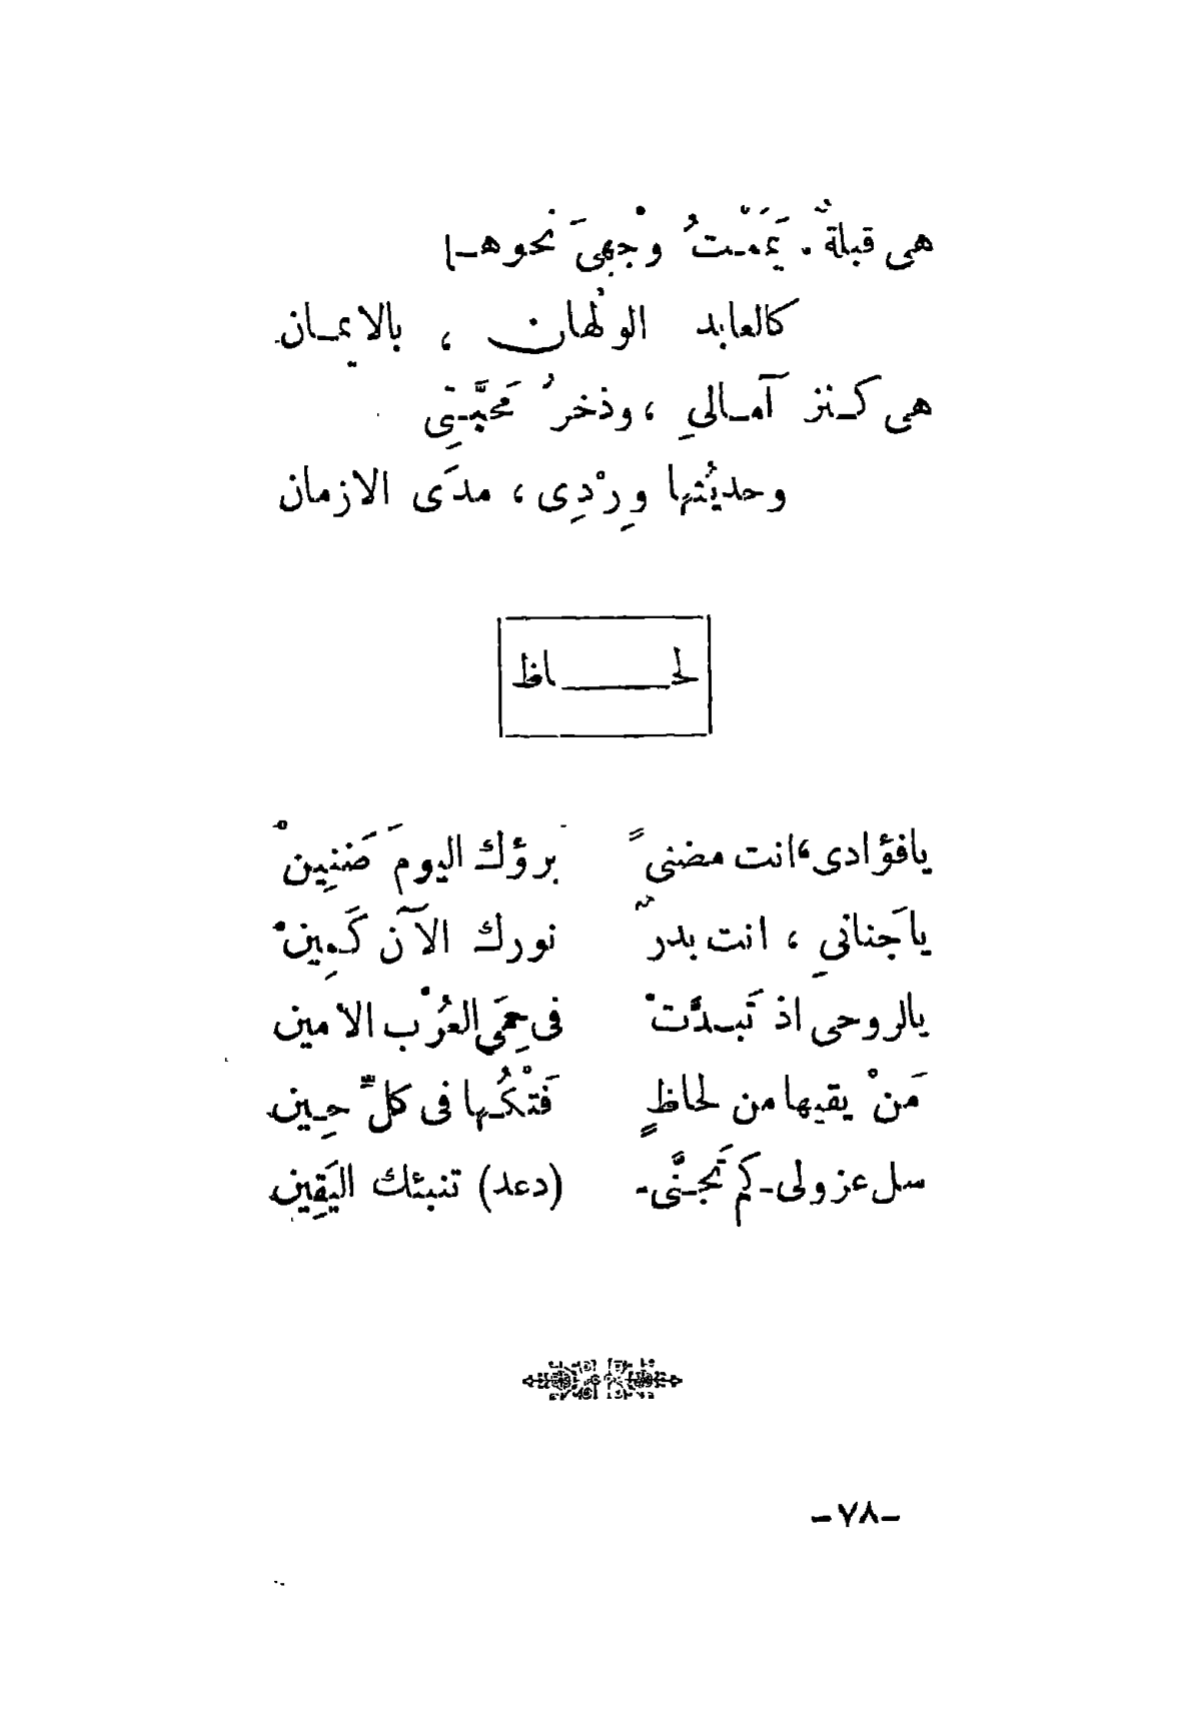 هى قبلةٌ. يَمَمْتُ وجْهِىَ نحوهـا
كالعابد الولْهان ، بالايمـان
هى كـنز آمـالىِ ، وذخرُ مَحبَّـتِى
وحديُثها وِرْدِى ، مدَى الازمان
لحـــاظ
يافؤادى، انت مضنىً برؤك اليومَ ضَنِينْ
ياجَنانىِ ، انت بدرٌ نورك الآن كَـمِينْ
يالروحى اذ تَبـدَّتْ فى حِمَى العُرْب الامين
مَنْ يقيها من لحاظٍ فَتْكُـها فى كلِّ حِـين
سل عزولى ـ كم تَجـنَّى ـ (دعد) تنبئك اليَقِين
ـ ٧٨ ـ